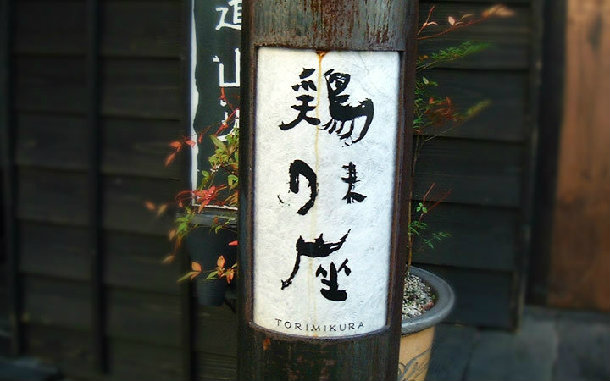 鶏
味
座
TORIMIKURA